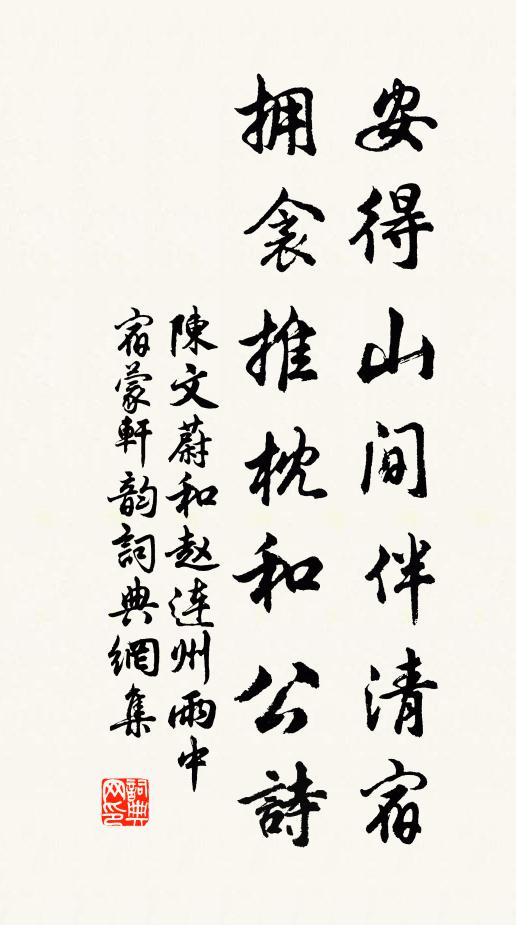 安得山間伴清宿
拥衾推枕和公詩
陳文蔚和赵連州雨中
宿蒙軒韵詞典網集
詞典网印